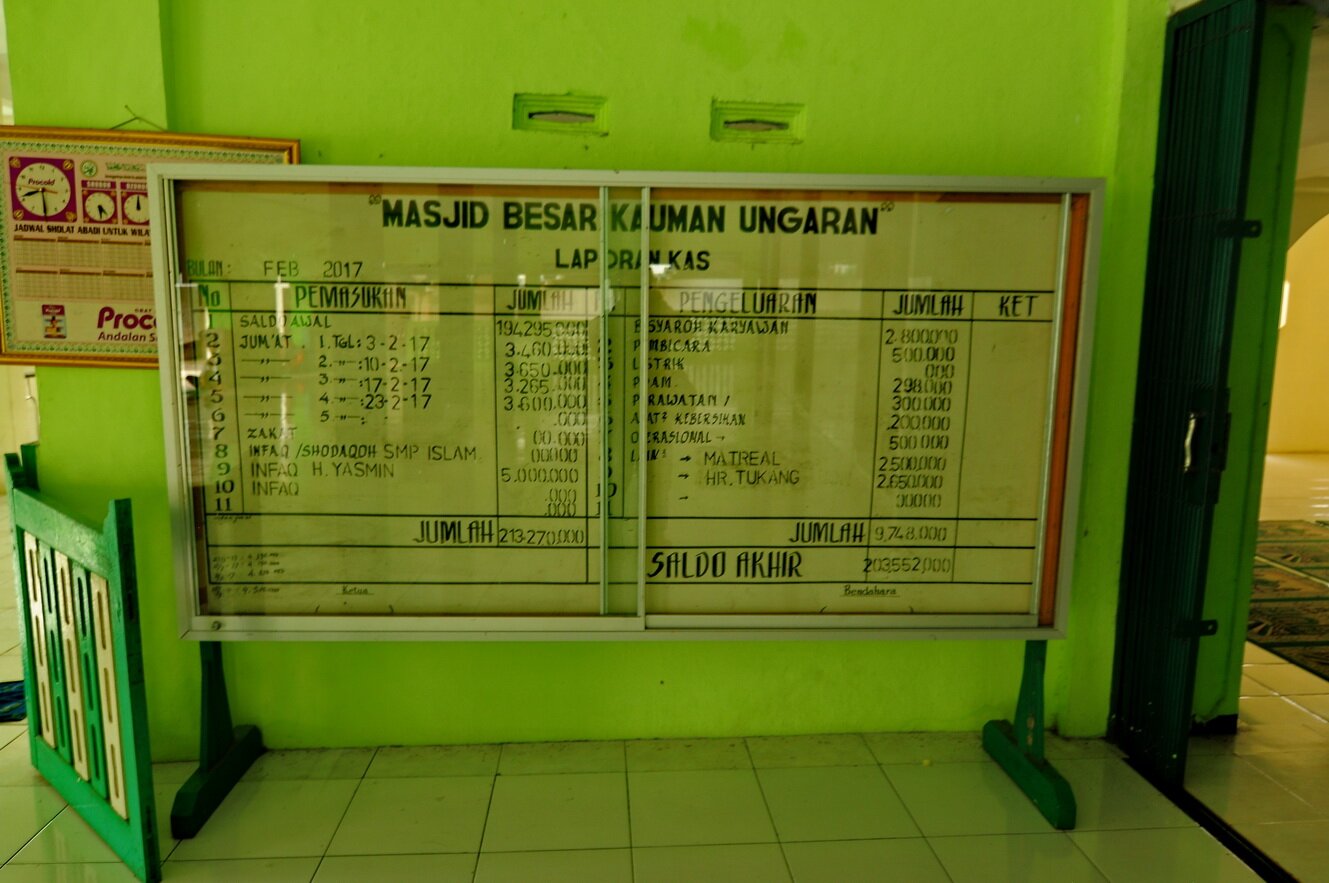 "MASJID BESAR KAUMAN UNGARAN"
LAPORAN KAS
BULAN : FEB 2017
No PEMASUKAN JUMLAH PENGELUARAN JUMLAH KET
1 SALDO AWAL 194.295.000 BISYAROH KARYAWAN 2.800.000
2 JUM'AT . 1.TGL: 3-2-17 3.460.000 PEMBICARA 500.000
3 —"— 2.—"—:10-2-17 3.650.000 LISTRIK 000
4 —"— 3.—"—:17-2-17 3.265.000 PDAM. 298.000
5 —"— 4.—"—:23-2-17 3.600.000 PERAWATAN / 300.000
6 —"— 5.—"—: .000 ALAT² KEBERSIHAN .200.000
7 ZAKAT 00.000 OPERASIONAL → 500.000
8 INFAQ /SHODAQOH SMP ISLAM. 00000 LAIN² → MATREAL 2.500.000
9 INFAQ H.YASMIN 5.000.000 → HR.TUKANG 2.650.000
10 INFAQ .000 10 → 00000
11 .000
JUMLAH 213.270.000 JUMLAH 9.748.000
SALDO AKHIR 203,552,000
Ketua Bendahara
Procold
SHUBUH
DZUHUR
JADWAL SHOLAT ABADI UNTUK
Andalan